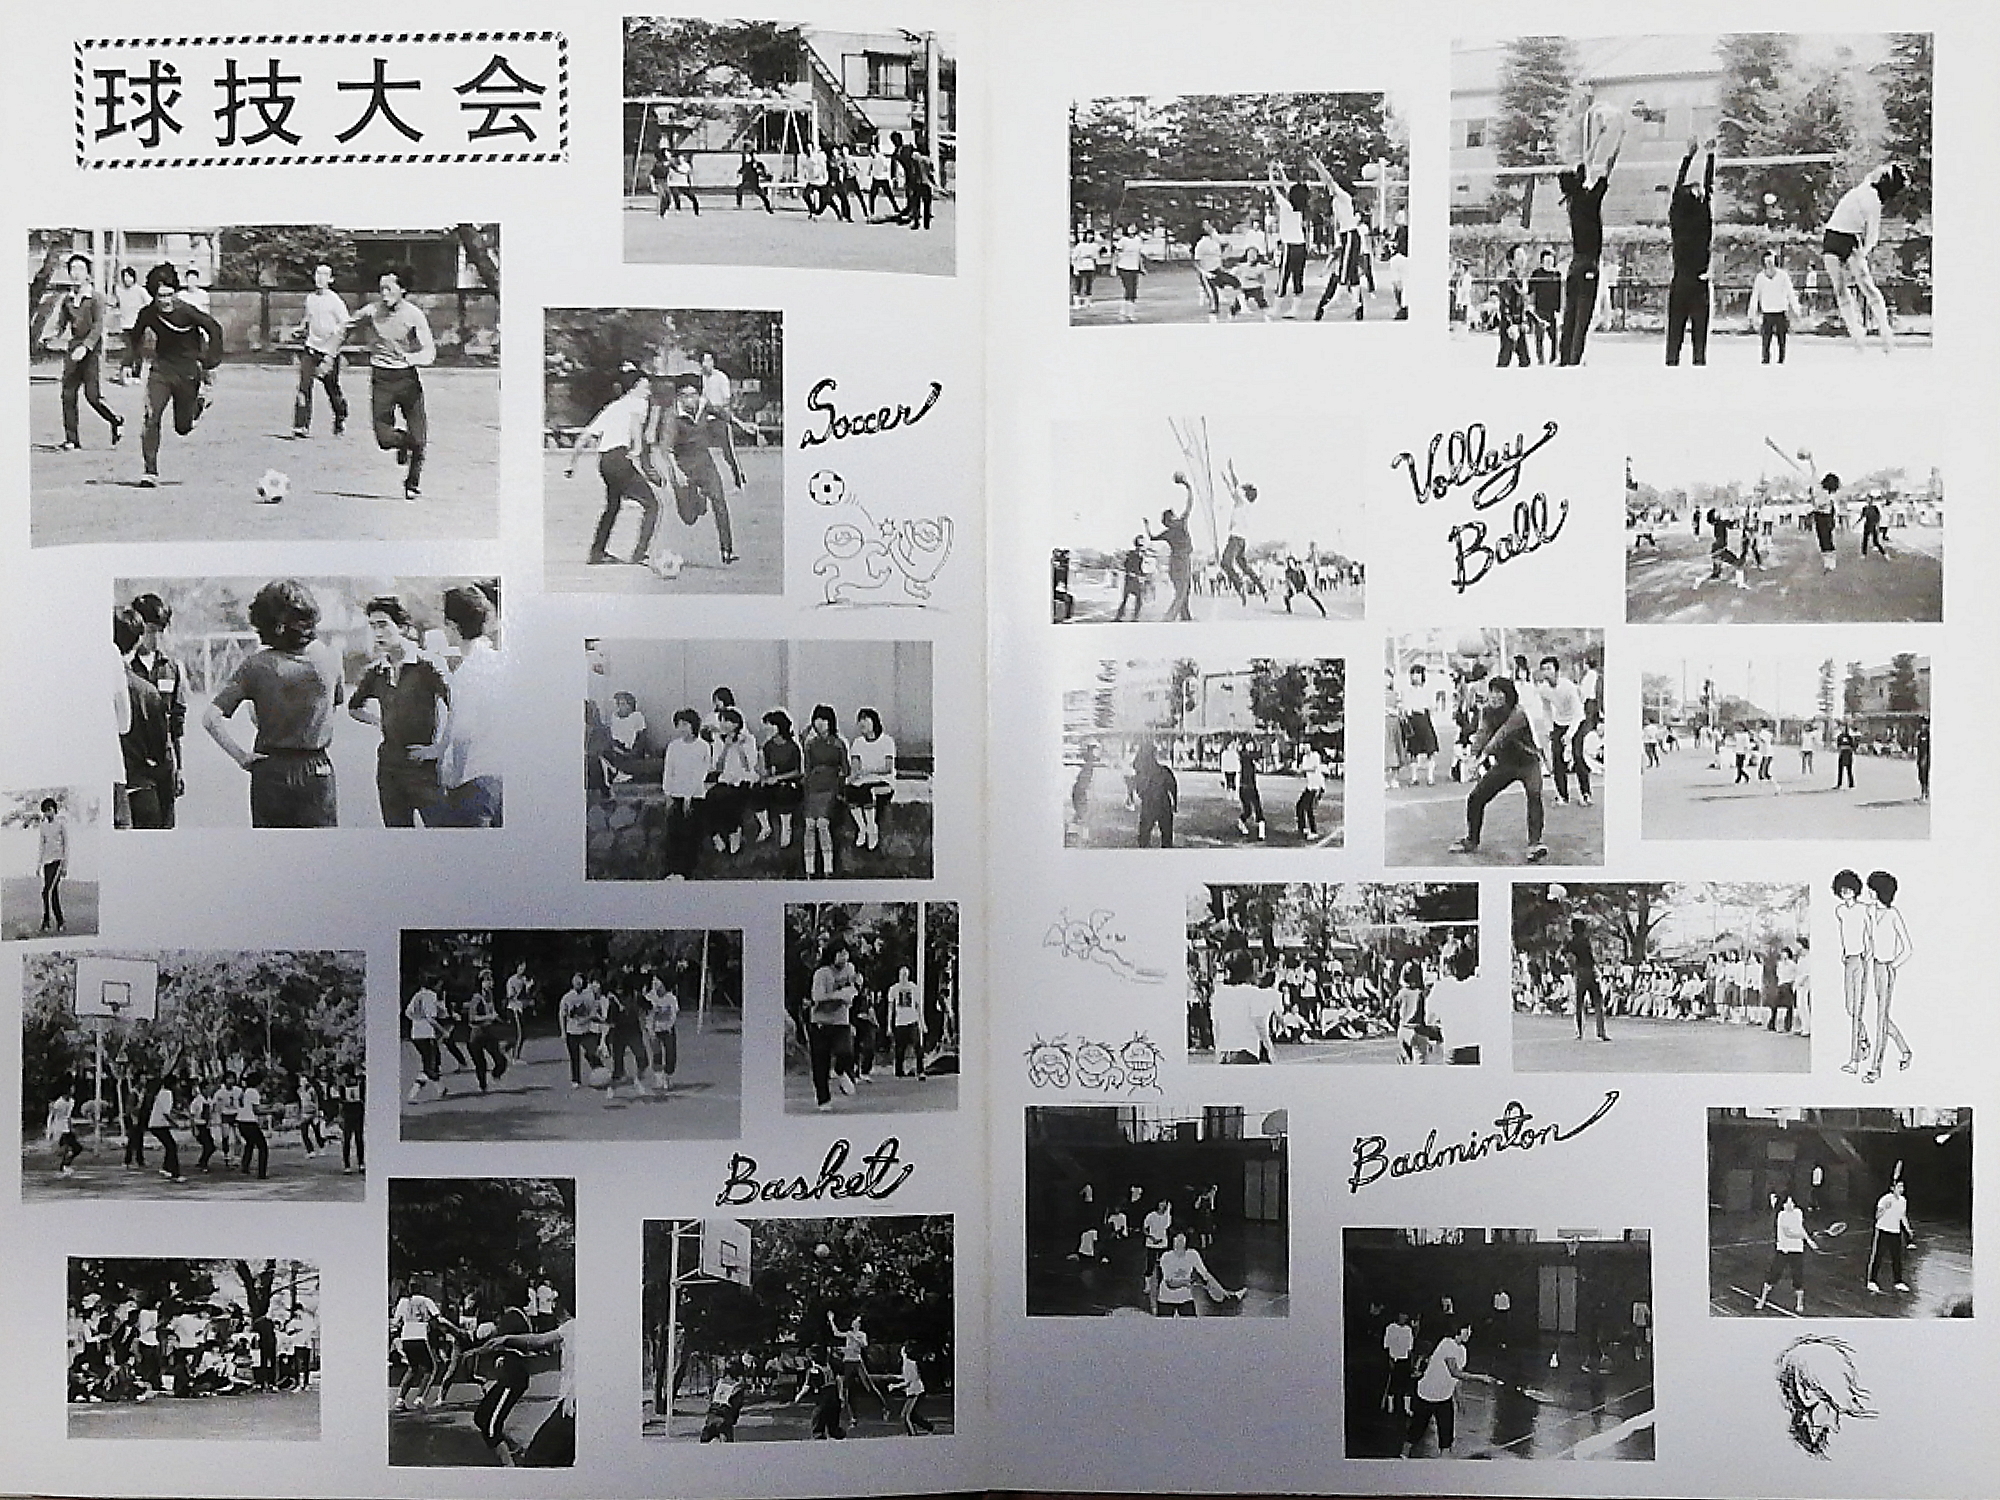 球技大会
Soccer
Basket
Volley
Ball
Badminton
15